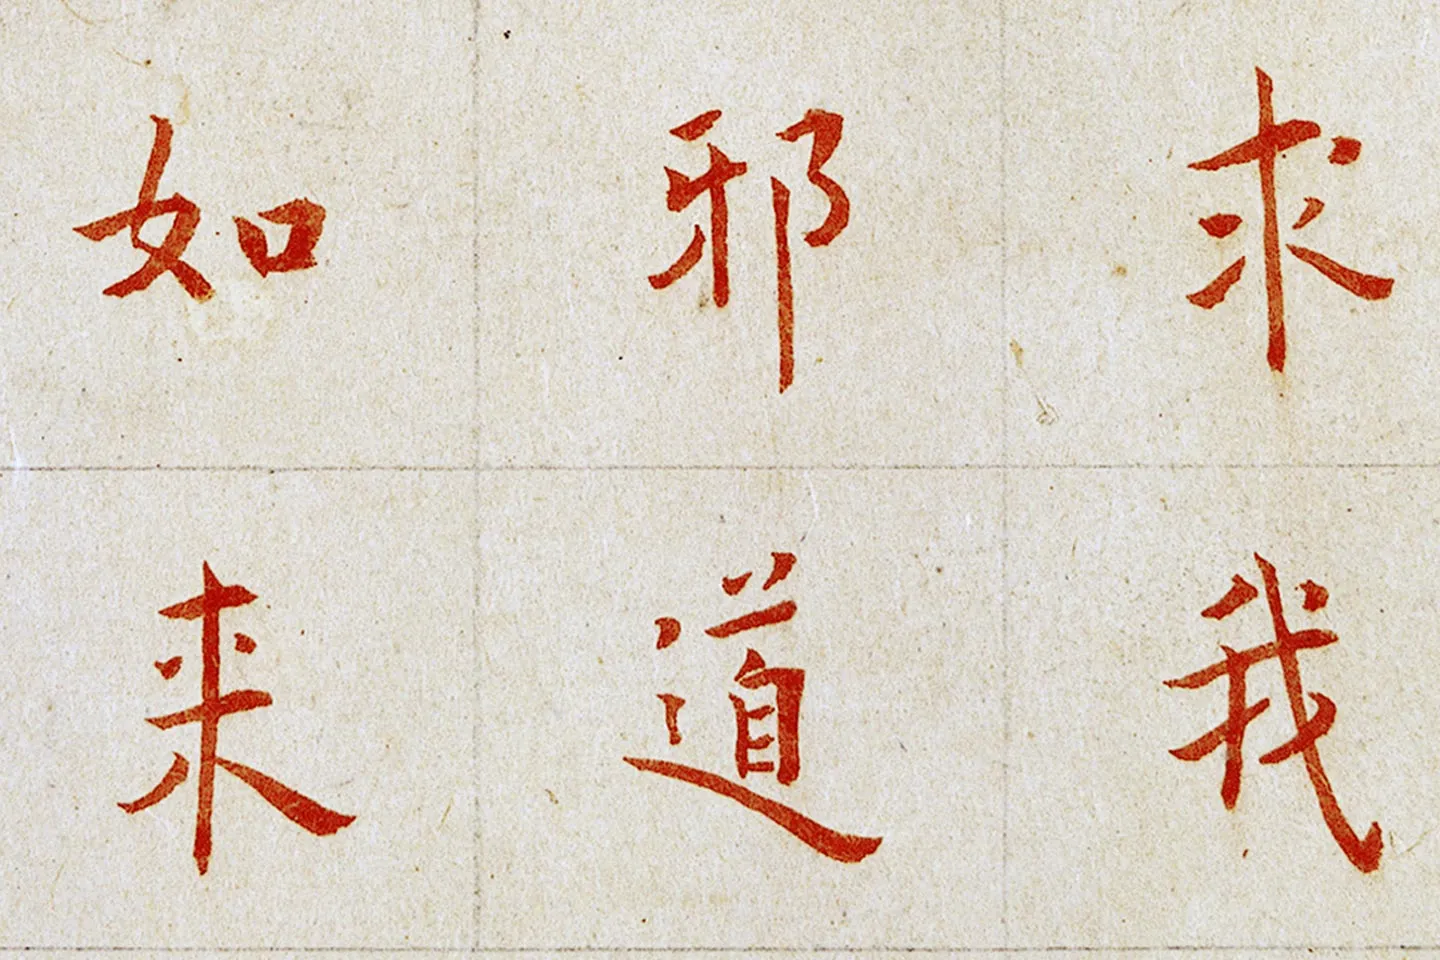 求我
邪道
如来